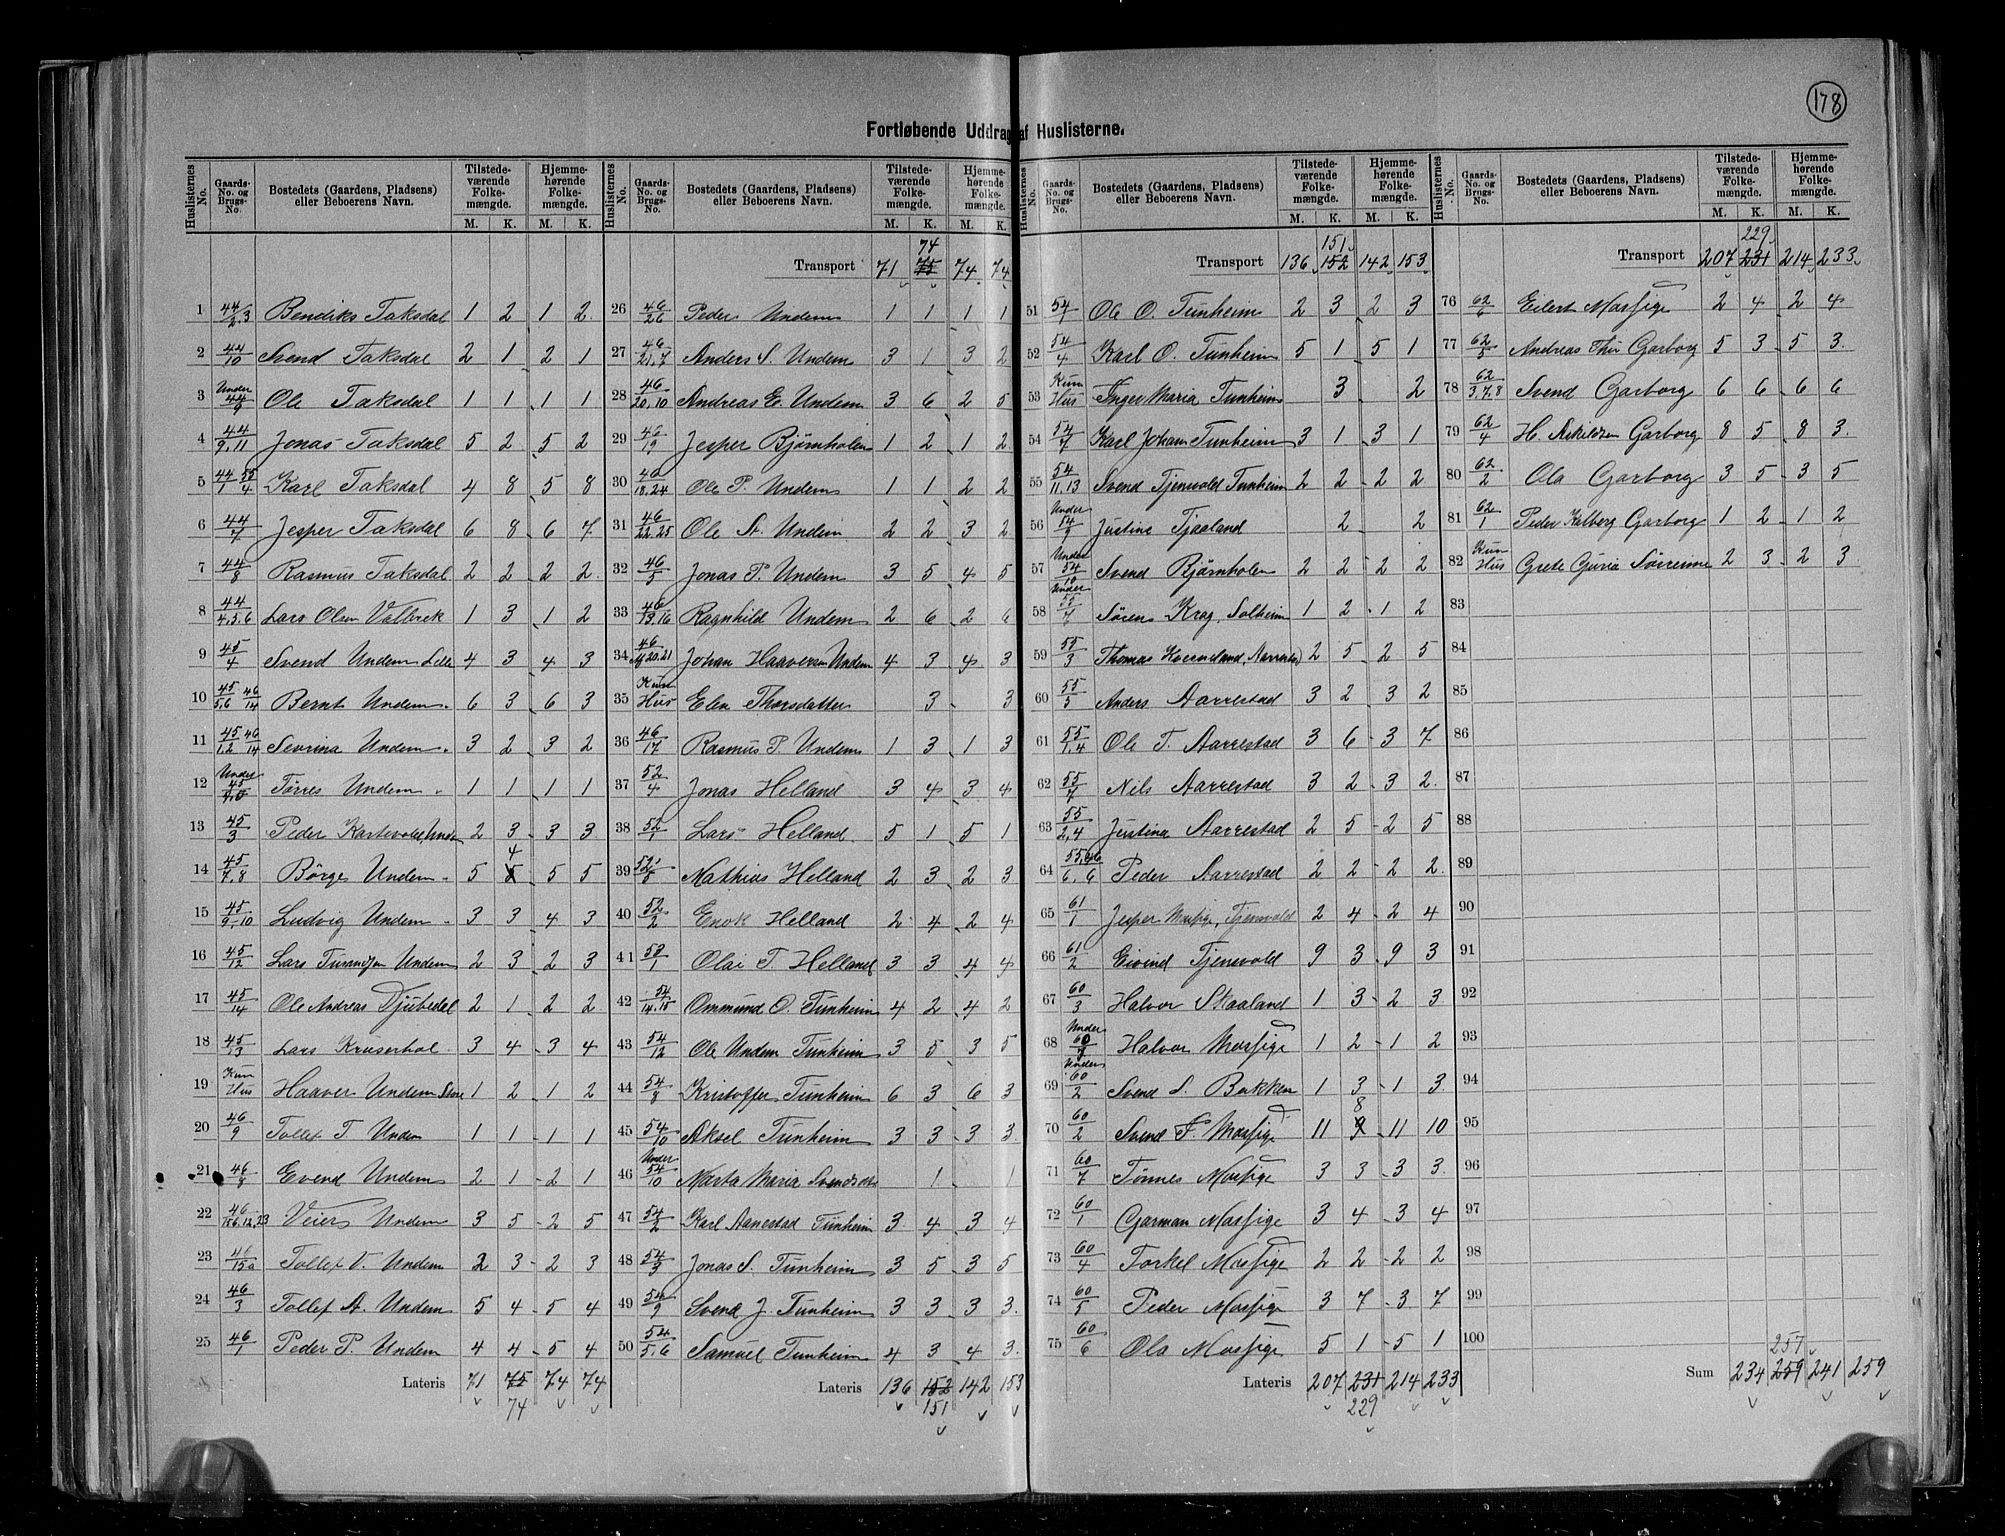 178
Fortløbende Uddrag af Huslisterne.
Huslisternes No. Gaards-No. og Brugs-No. Bostedets (Gaardens, Pladsens) eller Beboerens Navn. Tilstede-værende Folke-mængde. M. K. Hjemme-hørende Folke-mængde. M. K.
1 44/2.3 Bendiks Taksdal 1 2 1 2
2 44/10 Svend Taksdal 2 1 2 1
3 Under 44/9 Ole Taksdal 1 1 1 1
4 44/9.11 Jonas Taksdal 5 2 5 2
5 44/1 55/4 Karl Taksdal 4 8 5 8
6 44/7 Jesper Taksdal 6 8 6 7
7 44/8 Rasmus Taksdal 2 2 2 2
8 44/4.5.6 Lars Olsen Valbæk 1 3 1 2
9 45/4 Svend Undem Lille 4 3 4 3
10 45/5.6 46/14 Bernt Undem " 6 3 6 3
11 45/1.2 46/14 Sevrina Undem " 3 2 3 2
12 Under 45 Tørres Undem " 1 1 1 1
13 45/3 Peder Kartevold, Undem 2 3 3 3
14 45/7.8 Børge Undem " 5 4 5 5
15 45/9.10 Ludvig Undem " 3 3 4 3
16 45/12 Lars Undem 2 3 2 3
17 45/14 Ole Andreas Djubedal 2 1 2 2
18 45/13 Lars Kruserhol 3 4 3 4
19 Kun Hus Haaver Undem Store 1 2 1 2
20 46/9 Tollef T Undem 1 1 1 1
21 46/8 Evend Undem 2 1 2 1
22 46 Veier Undem 3 5 2 5
23 46/15a Tollef V. Undem 2 3 2 3
24 46/3 Tollef A. Undem 5 4 5 4
25 46/1 Peder P. Undem 4 4 5 4
Lateris 71 75 74 74
74
Huslisternes No. Gaards-No. og Brugs-No. Bostedets (Gaardens, Pladsens) eller Beboerens Navn. Tilstede-værende Folke-mængde. M. K. Hjemme-hørende Folke-mængde. M. K.
74
Transport 71 75 74 74
26 46/26 Peder Undem 1 1 1 1
27 46/21.7 Anders S. Undem 3 1 3 2
28 46/20.10 Andreas E. Undem 3 6 2 5
29 46/19 Jesper Bjørnholen 1 2 1 2
30 46/18.24 Ole P. Undem 1 1 2 2
31 46/22.25 Ole St. Undem 2 2 3 2
32 46/5 Jonas P. Undem 3 5 4 5
33 46/13.16 Ragnhild Undem 2 6 2 6
34 46 Johan Haaversen Undem 4 3 4 3
35 Kun Hus Elen Thorsdatter 3 3
36 46/17 Rasmus P. Undem 1 3 1 3
37 52/4 Jonas Helland 3 4 3 4
38 52/1 Lars Helland 5 1 5 1
39 52 Mathias Helland 2 3 2 3
40 52/2 Enok Helland 2 4 2 4
41 53/1 Olai T Helland 3 3 4 4
42 54/14.15 Ommund O. Tunheim 4 2 4 2
43 54/12 Ole Undem Tunheim 3 5 3 5
44 54/8 Kristoffer Tunheim 6 3 6 3
45 54/10 Aksel Tunheim 3 3 3 3
46 Under 54/10 Marta Maria Svendsdtr 1 1
47 54/2 Karl Aanestad Tunheim 3 4 3 4
48 54/3 Jonas S. Tunheim 3 5 3 5
49 54/9 Svend J. Tunheim 3 3 3 3
50 54/5.6 Samuel Tunheim 4 3 4 3
Lateris 136 152 142 153
151
Huslisternes No. Gaards-No. og Brugs-No. Bostedets (Gaardens, Pladsens) eller Beboerens Navn. Tilstede-værende Folke-mængde. M. K. Hjemme-hørende Folke-mængde. M. K.
151
Transport 136 152 142 153
51 54/1 Ole O. Tunheim 2 3 2 3
52 54/4 Karl O. Tunheim 5 1 5 1
53 Kun Hus Inger Maria Tunheim 3 2
54 54/7 Karl Johan Tunheim 3 1 3 1
55 54/11.13 Svend Tjensvold Tunheim 2 2 2 2
56 Under 54/9 Justine Tjaaland 2 2
57 Under 54/10 Svend Bjørnholen 2 2 2 2
58 Under 55/7 Søren Krag, Solheim 1 2 1 2
59 55/3 Thomas Kverneland, Aarrestad 2 5 2 5
60 55/5 Anders Aarrestad 3 2 3 2
61 55/1.4 Ole T. Aarrestad 3 6 3 7
62 55/7 Nils Aarrestad 3 2 3 2
63 55/2.4 Justina Aarrestad 2 5 2 5
64 55.66/6.6 Peder Aarrestad 2 2 2 2
65 61/1 Jesper Mossige, Tjensvold 2 4 2 4
66 61/2 Eivind Tjensvold 9 3 9 3
67 60/3 Halvor Skaaland 1 3 2 3
68 Under 60/7 Halvor Mossige 1 2 1 2
69 Under 60/2 Svend S. Bakken 1 3 1 3
70 60/2 Svend F. Mossige 11 8 11 10
71 60/7 Tønnes Mossige 3 3 3 3
72 60/1 Garman Mossige 3 4 3 4
73 60/4 Torkel Mossige 2 2 2 2
74 60/5 Peder Mossige 3 7 3 7
75 60/6 Ola Mossige 5 1 5 1
Lateris 207 231 214 233
229
Huslisternes No. Gaards-No. og Brugs-No. Bostedets (Gaardens, Pladsens) eller Beboerens Navn. Tilstede-værende Folke-mængde. M. K. Hjemme-hørende Folke-mængde. M. K.
229
Transport 207 231 214 233
76 62/6 Eilert Mossige 2 4 2 4
77 62/5 Andreas Thu Garborg 5 3 5 3
78 62/3.7.8 Svend Garborg 6 6 6 6
79 62/4 H. Askildsen Garborg 8 5 8 3
80 62/2 Ola Garborg 3 5 3 5
81 62/1 Peder Kalberg Garborg 1 2 1 2
82 Kun Hus Grete Guria Søireime 2 3 2 3
83
84
85
86
87
88
89
90
91
92
93
94
95
96
97
98
99
100
257
Sum 234 259 241 259